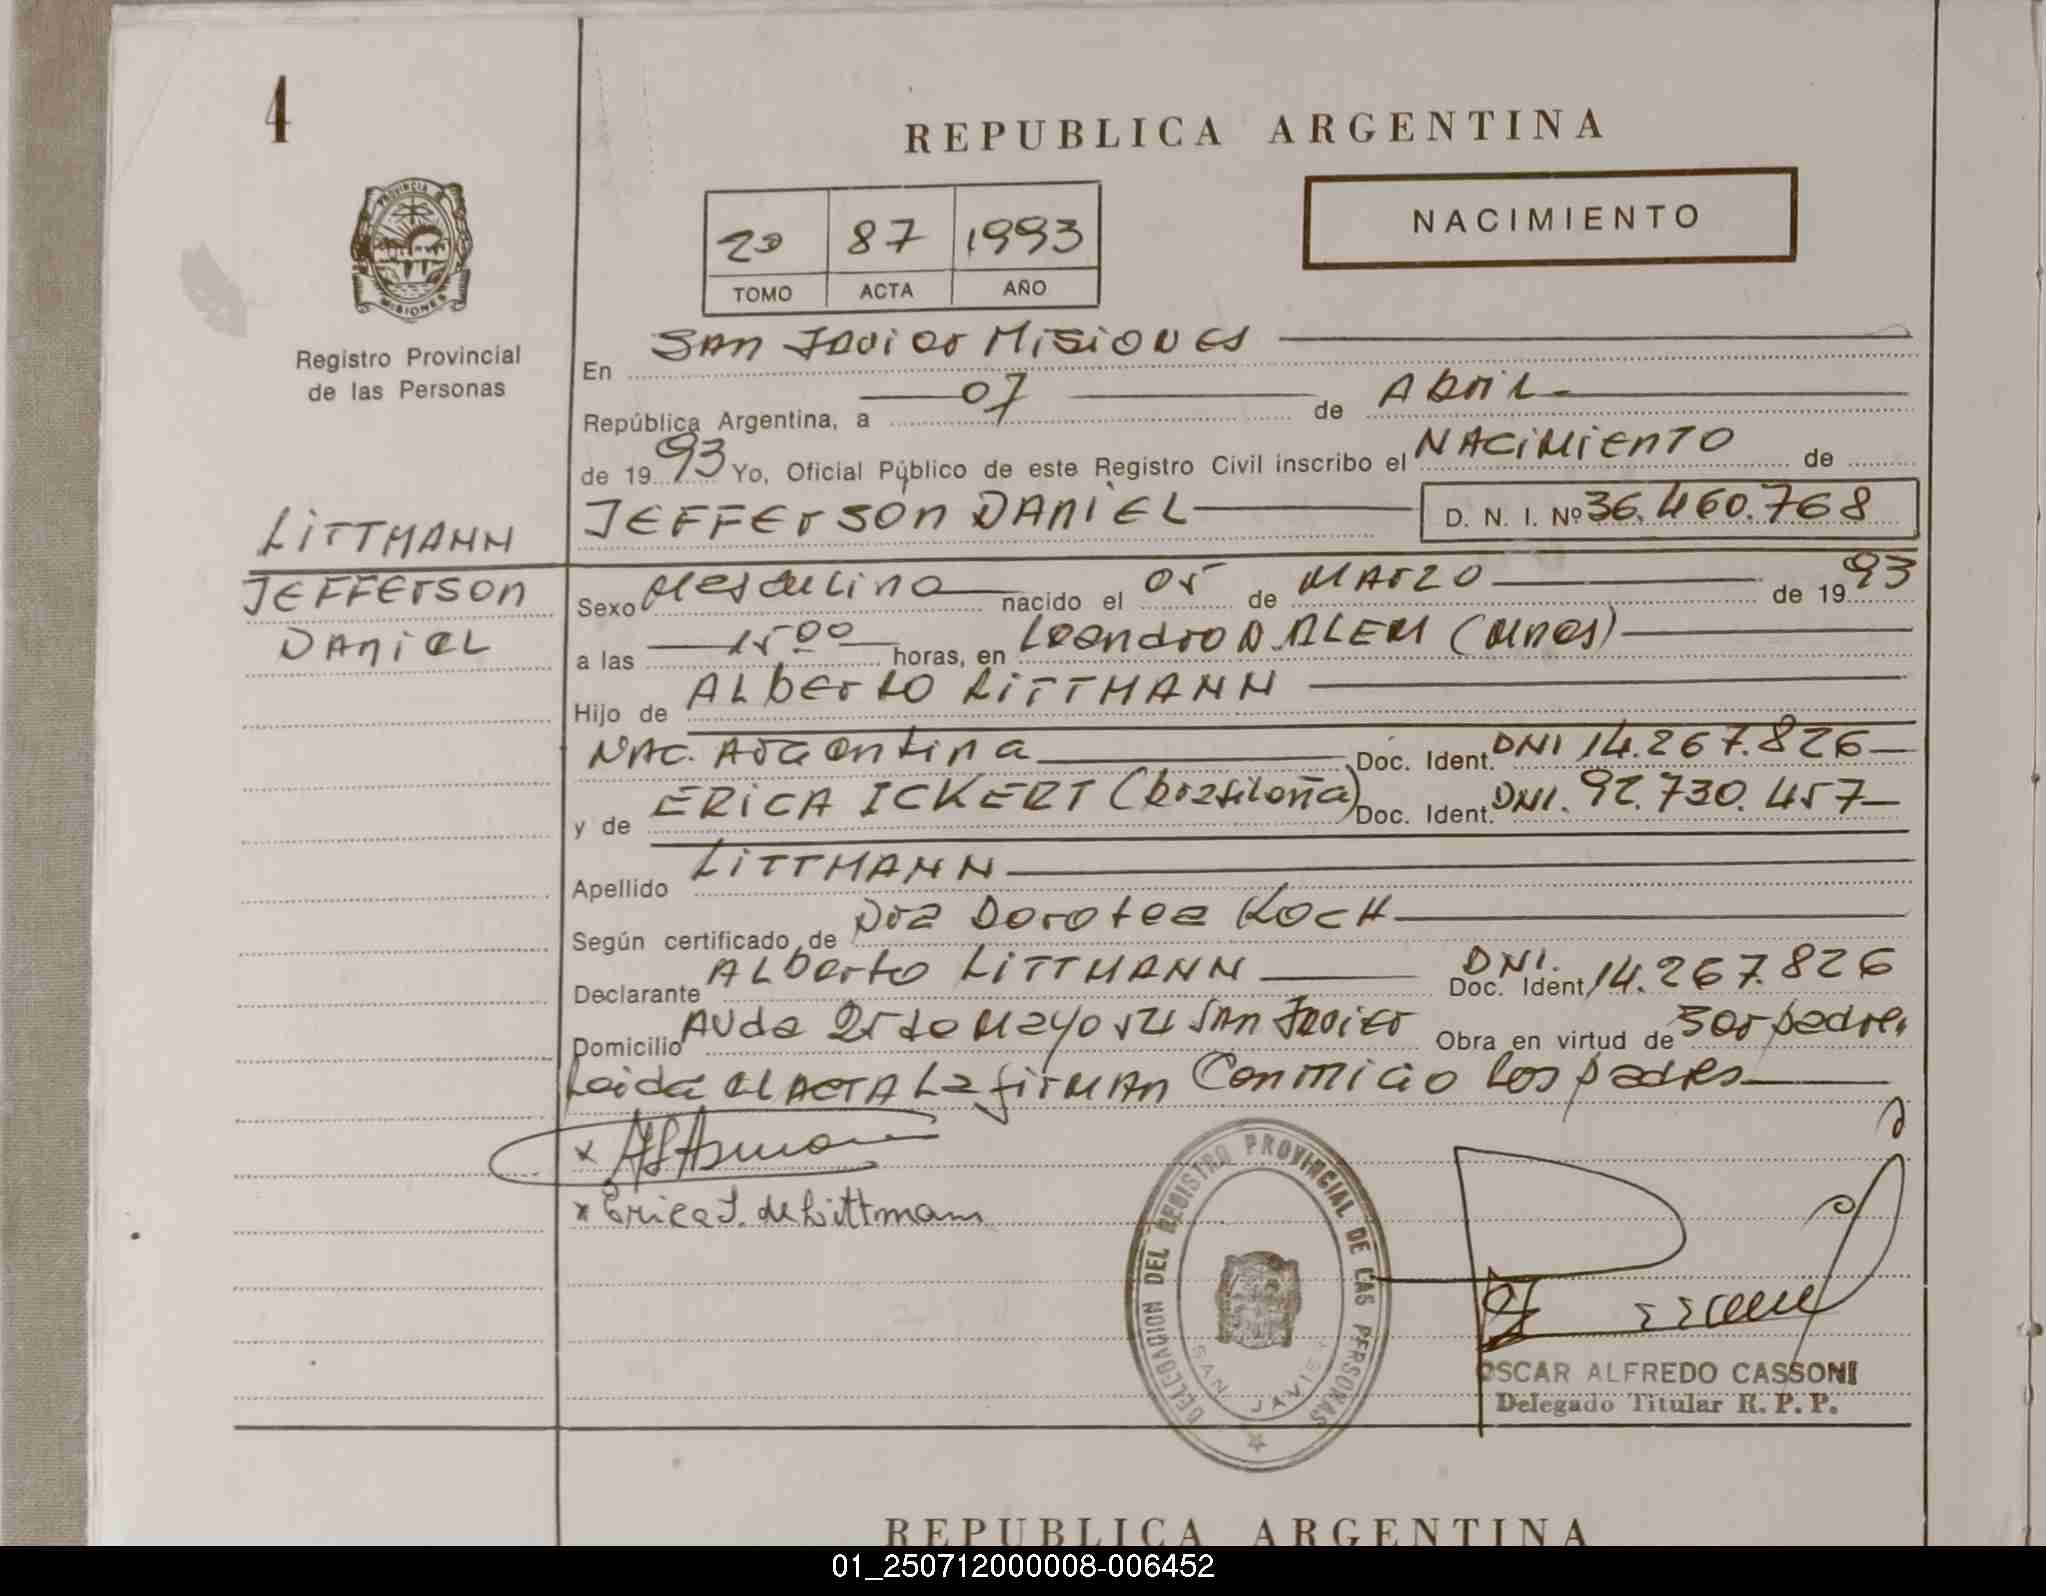 4
REPUBLICA ARGENTINA
PROVINCIA
MISIONES
Registro Provincial
de las Personas
NACIMIENTO
20 87 1993
TOMO ACTA AÑO
En San Javier Misiones
República Argentina, a 07 de Abril
de 1993 Yo, Oficial Público de este Registro Civil inscribo el NACIMIENTO de
JEFFERSON DANIEL D. N. I. Nº 36.460.768
LITTMANN
JEFFERSON
DANIEL
Sexo Masculino nacido el 05 de MARZO de 1993
a las 15 00 horas, en Leandro N. ALEM (Mnes)
Hijo de ALBERTO LITTMANN
NAC. Argentina Doc. Ident. DNI 14.267.826
y de ERICA ICKERT (brasileña) Doc. Ident. DNI. 92.730.457
Apellido LITTMANN
Según certificado de Dra Dorotea KOCH
Declarante ALberto LITTMANN DNI. Doc. Ident. 14.267.826
Domicilio AVda 25 de Mayo San Javier Obra en virtud de ser padre,
Leida el ACTA La firman Conmigo los padres
x
x Erica I. de Littmann
DELEGACION DEL REGISTRO PROVINCIAL DE LAS PERSONAS
SAN JAVIER
OSCAR ALFREDO CASSONI
Delegado Titular R. P. P.
REPUBLICA ARGENTINA
01_250712000008-006452